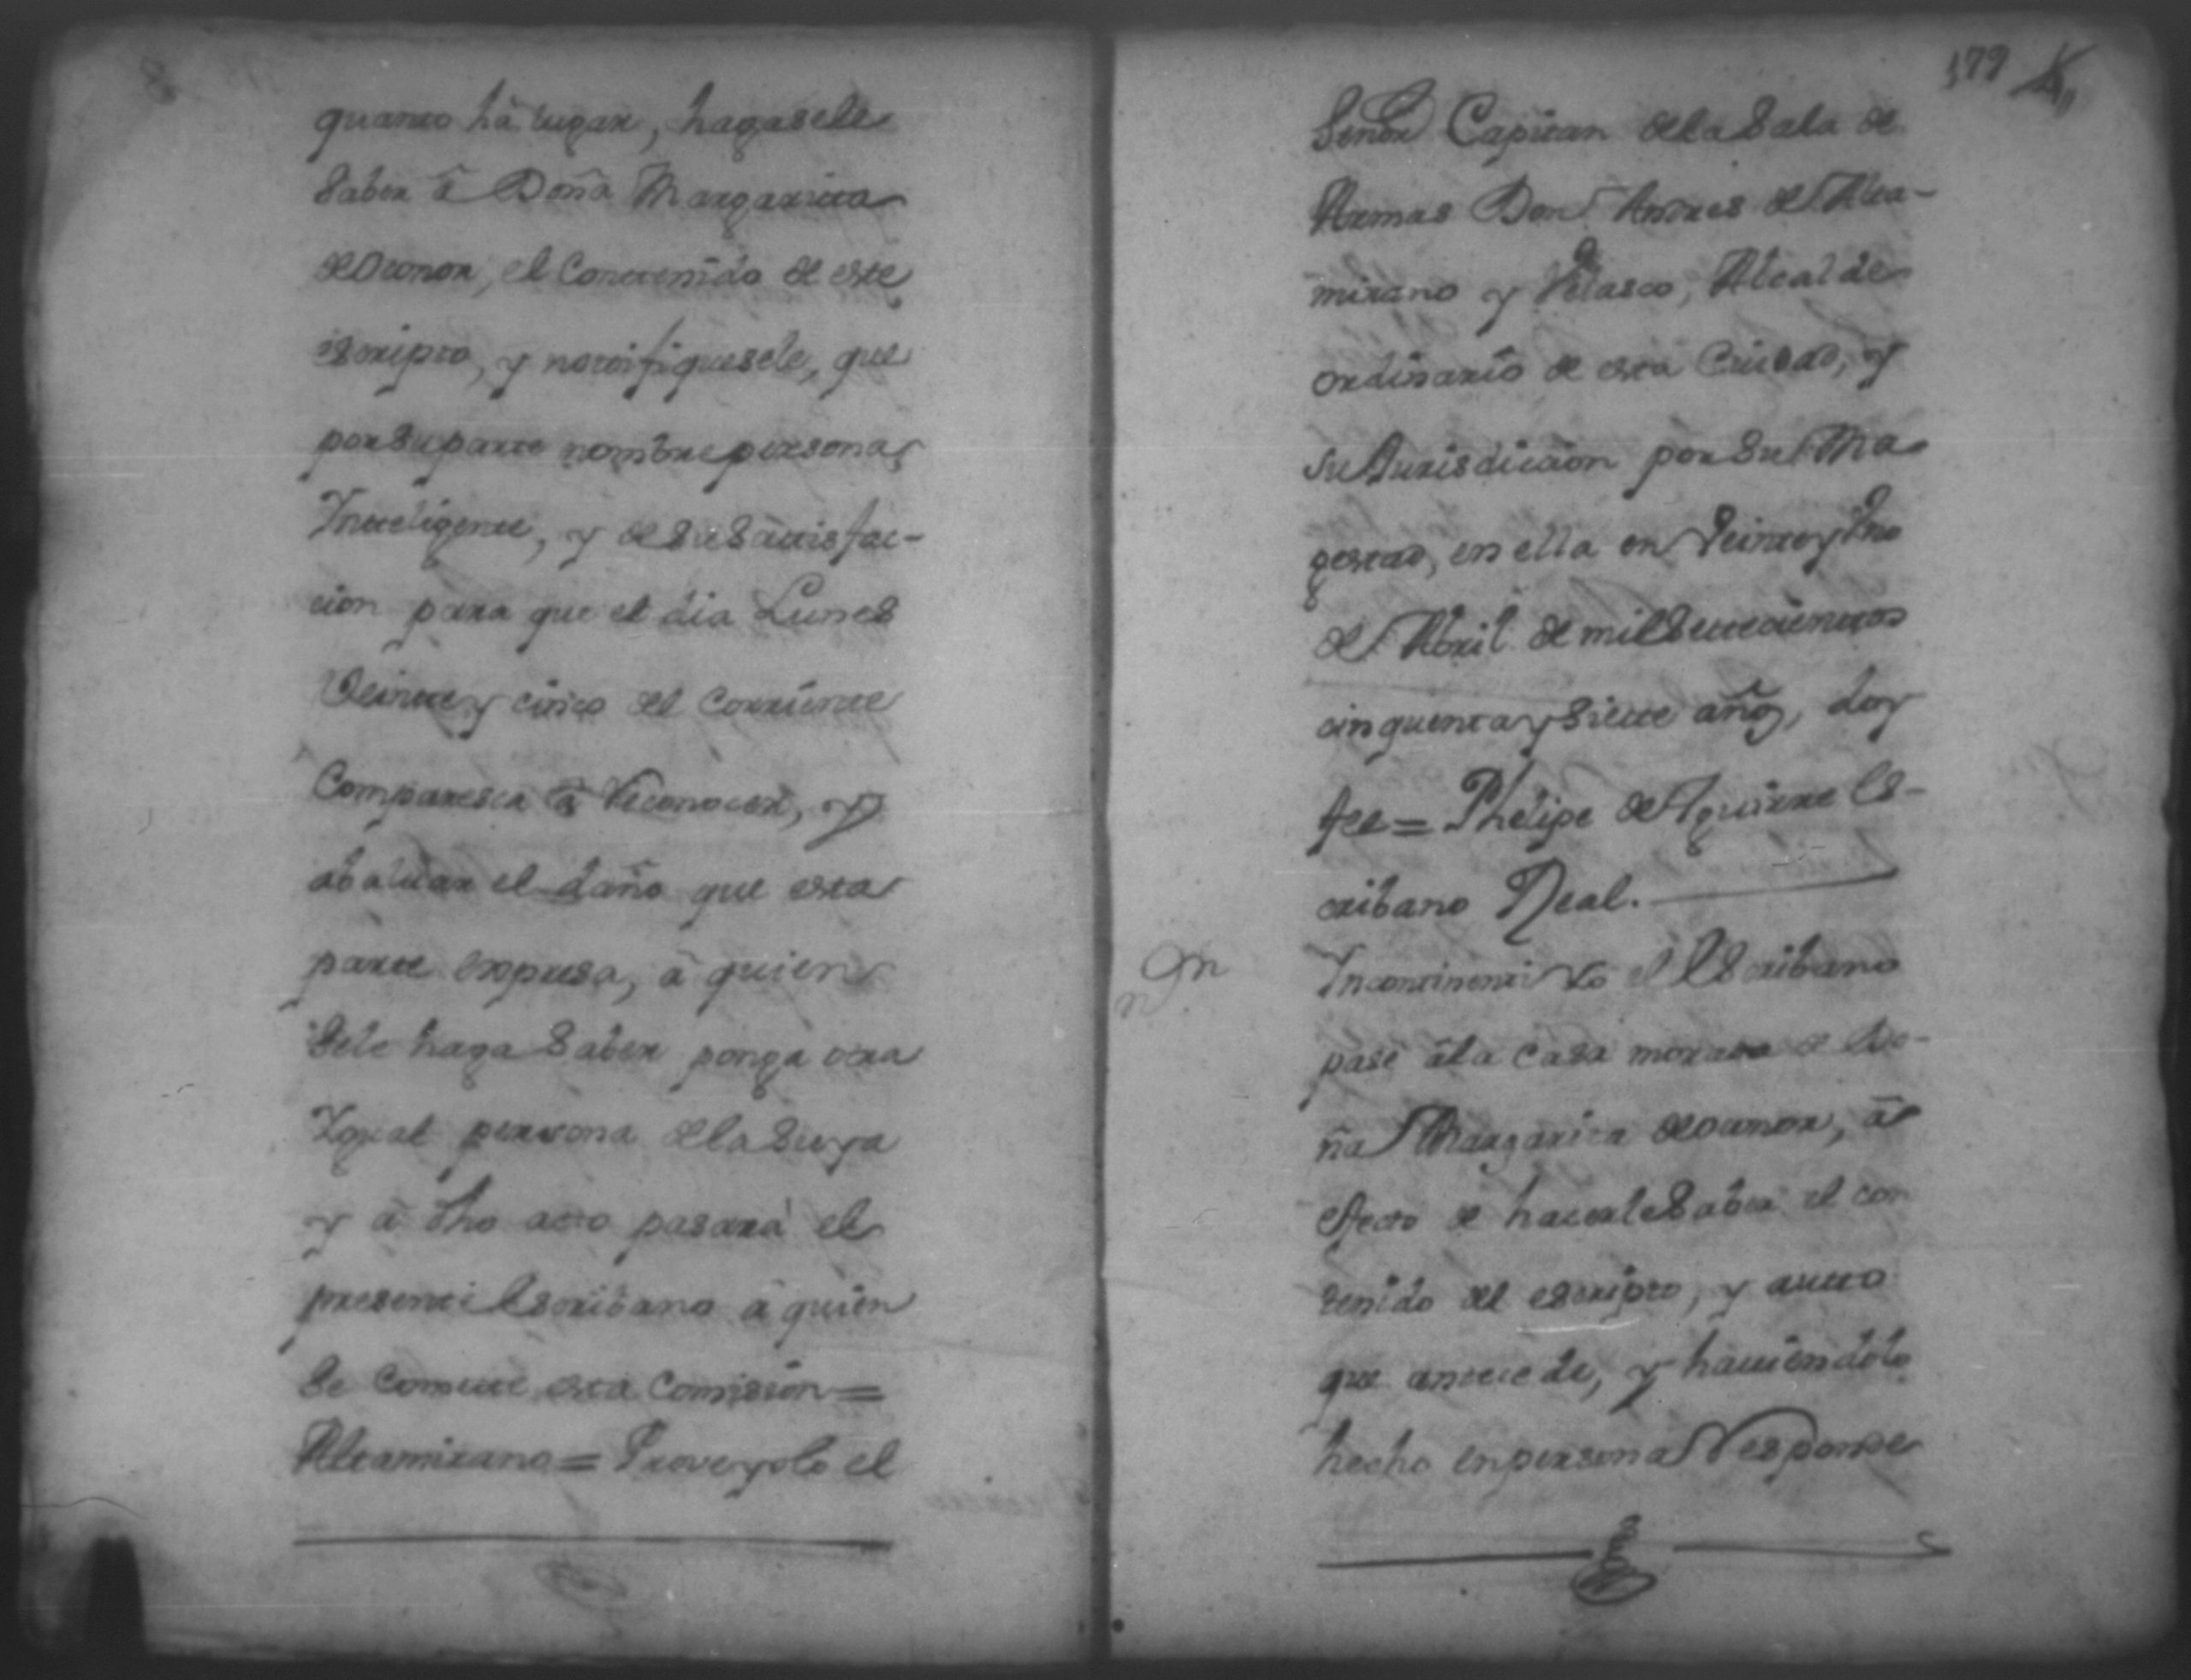 quanto hà lugar, hagasele
saber â Doña Margarita
de Otonor, el Contenido de este
escripto, y notifiquesele, que
por su parte nombre persona
Inteligente, y de su satisfac-
cion para que el dia Lunes
Veinte y cinco del corriente
Comparesca â Reconocer, y
abaluar el daño que esta
parte expresa, â quien
sele haga saber ponga otra
Igual persona dela suya
y â dho acto pasará el
presente Escribano â quien
se comete esta Comision =
Altamirano = Proveyolo el
179
Señor Capitan dela Sala de
Armas Don Andres de Alta-
mirano y Velasco, Alcalde
ordinario de esta Ciudad, y
su Jurisdiccion por su Ma-
gestad, en ella en Veinte y Uno
de Abril de mil setecientos
cinquenta y siete años, doy
fee = Phelipe de Aguirre Es-
cribano Real.
In continenti Yo el Escribano
pasé âla casa morada de Do-
ña Margarita de Otonor, â
efecto de hacerle saber el con
tenido del escripto, y auto
que antecede, y haviendolo
hecho en persona Responde